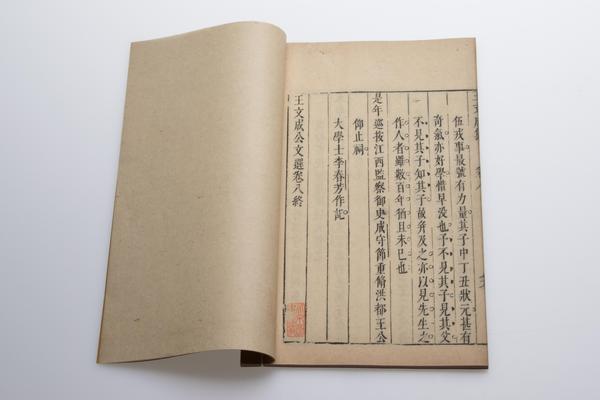 伍戎事最號有力量其子中丁丑狀元甚有
奇氣亦好學惜早沒也予不見其子見其父
不見其子知其子故并及之亦以見先生之
作人者雖數百年猶且未已也
是年巡按江西監察御史成守節重脩洪都王公
仰止祠
大學士李春芳作記
王文成公文選卷八終